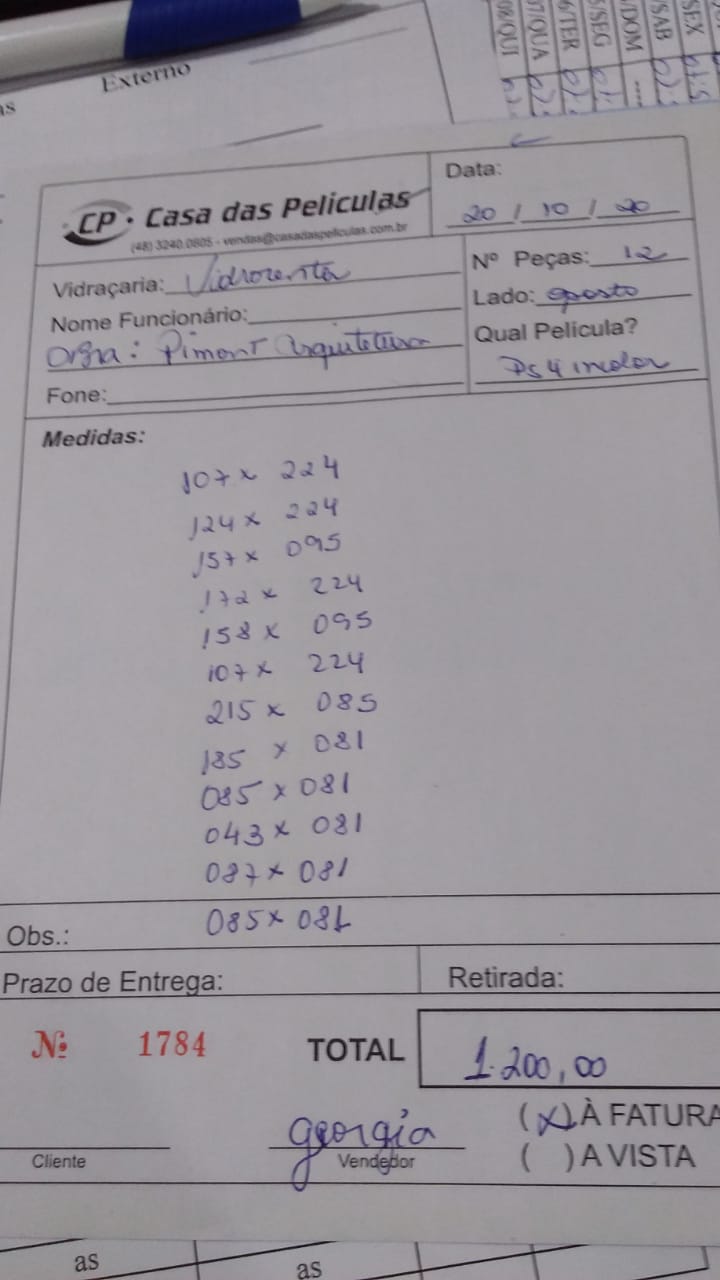 Externo
as
08/QUI
7/QUA
6/TER
5/SEG
/DOM
/SAB
SEX
CP · Casa das Películas
(48) 3240.0805 - vendas@casadaspeliculas.com.br
Data:
20 / 10 / 20
Vidraçaria:
Nº Peças: 12
Nome Funcionário:
Lado: oposto
Pimont Arquitetura
Qual Película?
PS4 incolor
Fone:
Medidas:
107 x 224
124 x 224
157 x 095
172 x 224
158 x 095
107 x 224
215 x 085
185 x 081
085 x 081
043 x 081
087 x 081
085 x 081
Obs.:
Prazo de Entrega:
Retirada:
Nº 1784
TOTAL
1.200,00
georgia
(X) À FATURA
Cliente
Vendedor
( ) A VISTA
as
as